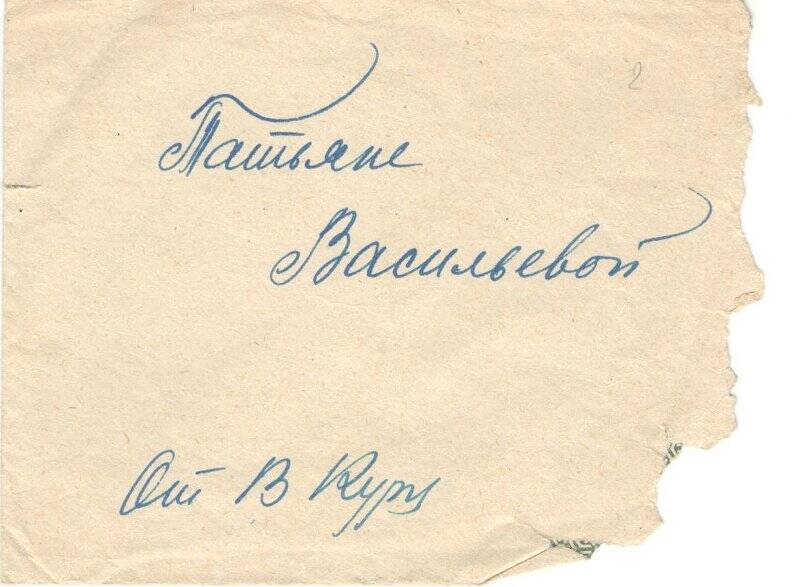 2
Татьяне
Васильевой
От В Курц